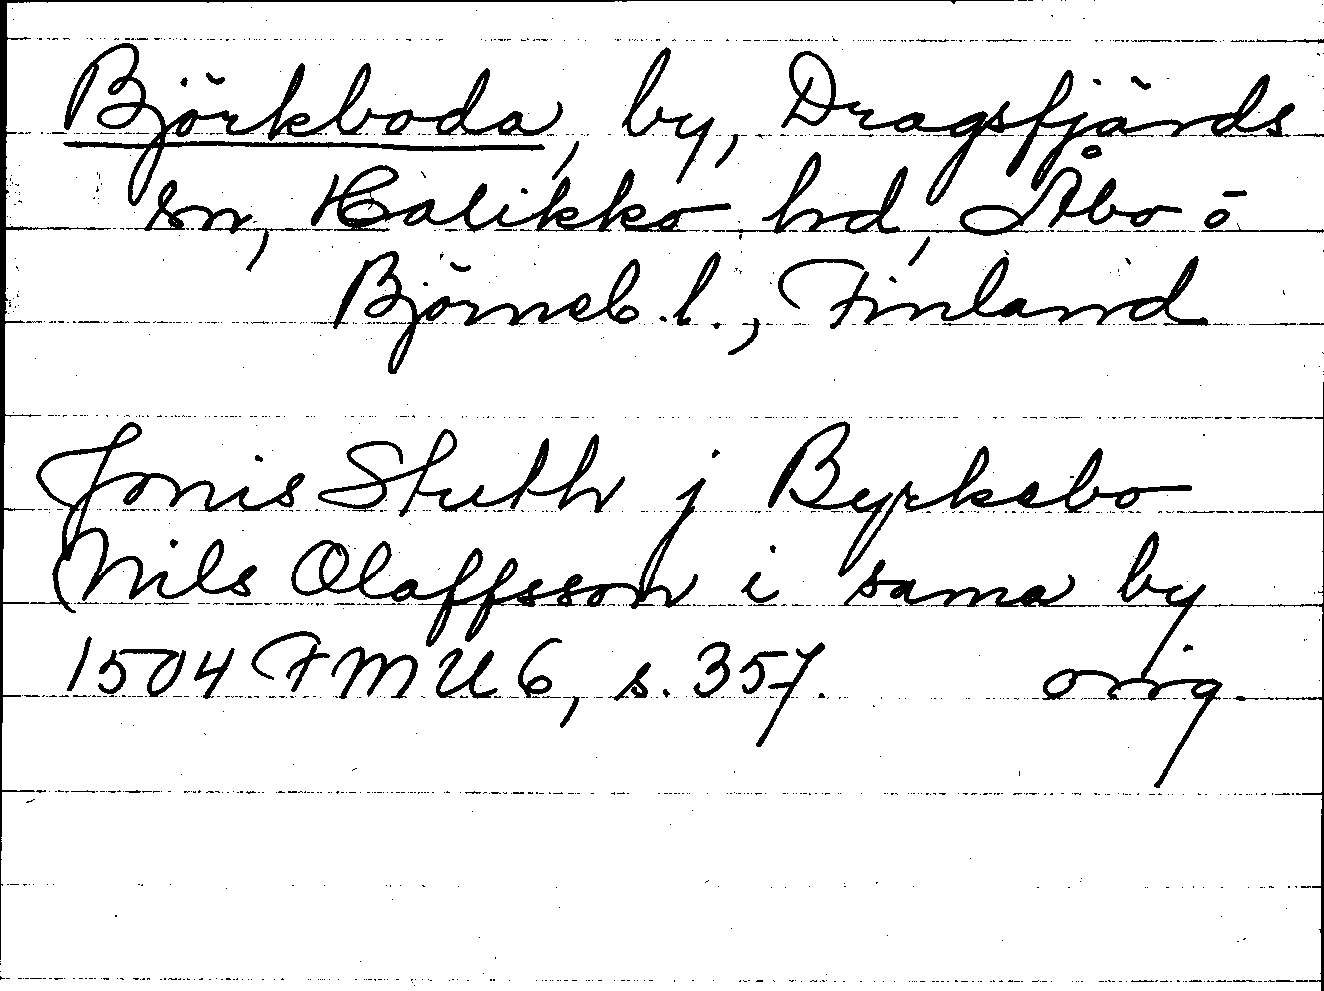 Björkboda, by, Dragsfjärds
sn, Halikko hd, Åbo o
Björneb. l., Finland
Jonis Struth j Byrkebo
Nils Olaffsson i sama by
1504 FMU 6, s. 357. orig.